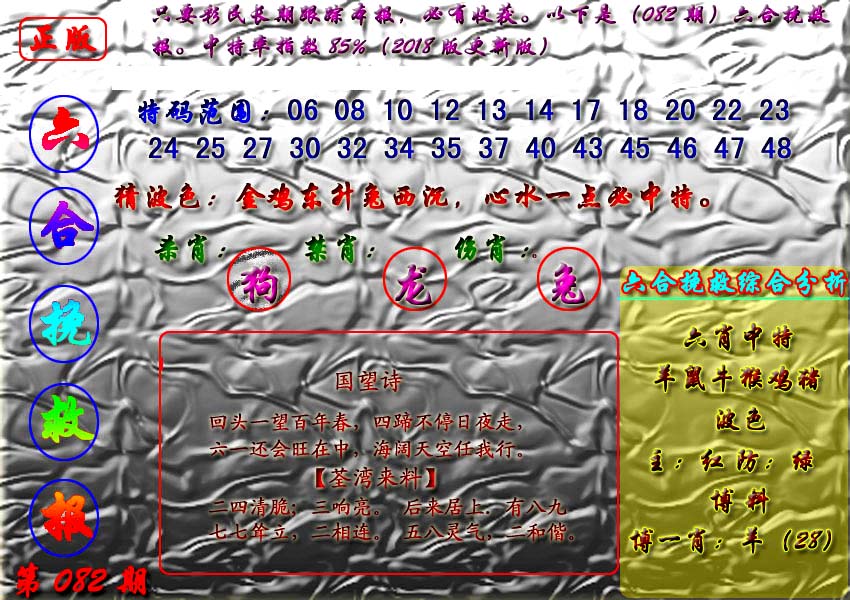 正版
只要彩民长期跟踪本报，必有收获。以下是（082期）六合挽救
报。中特率指数85%（2018版更新版）
六
合
挽
救
报
第082期
特码范围：06 08 10 12 13 14 17 18 20 22 23
24 25 27 30 32 34 35 37 40 43 45 46 47 48
猜波色：金鸡东升兔西沉，心水一点必中特。
杀肖：狗 禁肖：龙 伤肖：。兔
国望诗
回头一望百年春，四蹄不停日夜走，
六一还会旺在中，海阔天空任我行。
【荃湾来料】
二四清脆；三响亮。 后来居上．有八九
七七耸立，二相连。 五八灵气，二和偕。
六合挽救综合分析
六肖中特
羊鼠牛猴鸡猪
波色
主：红防：绿
博料
博一肖：羊（28）